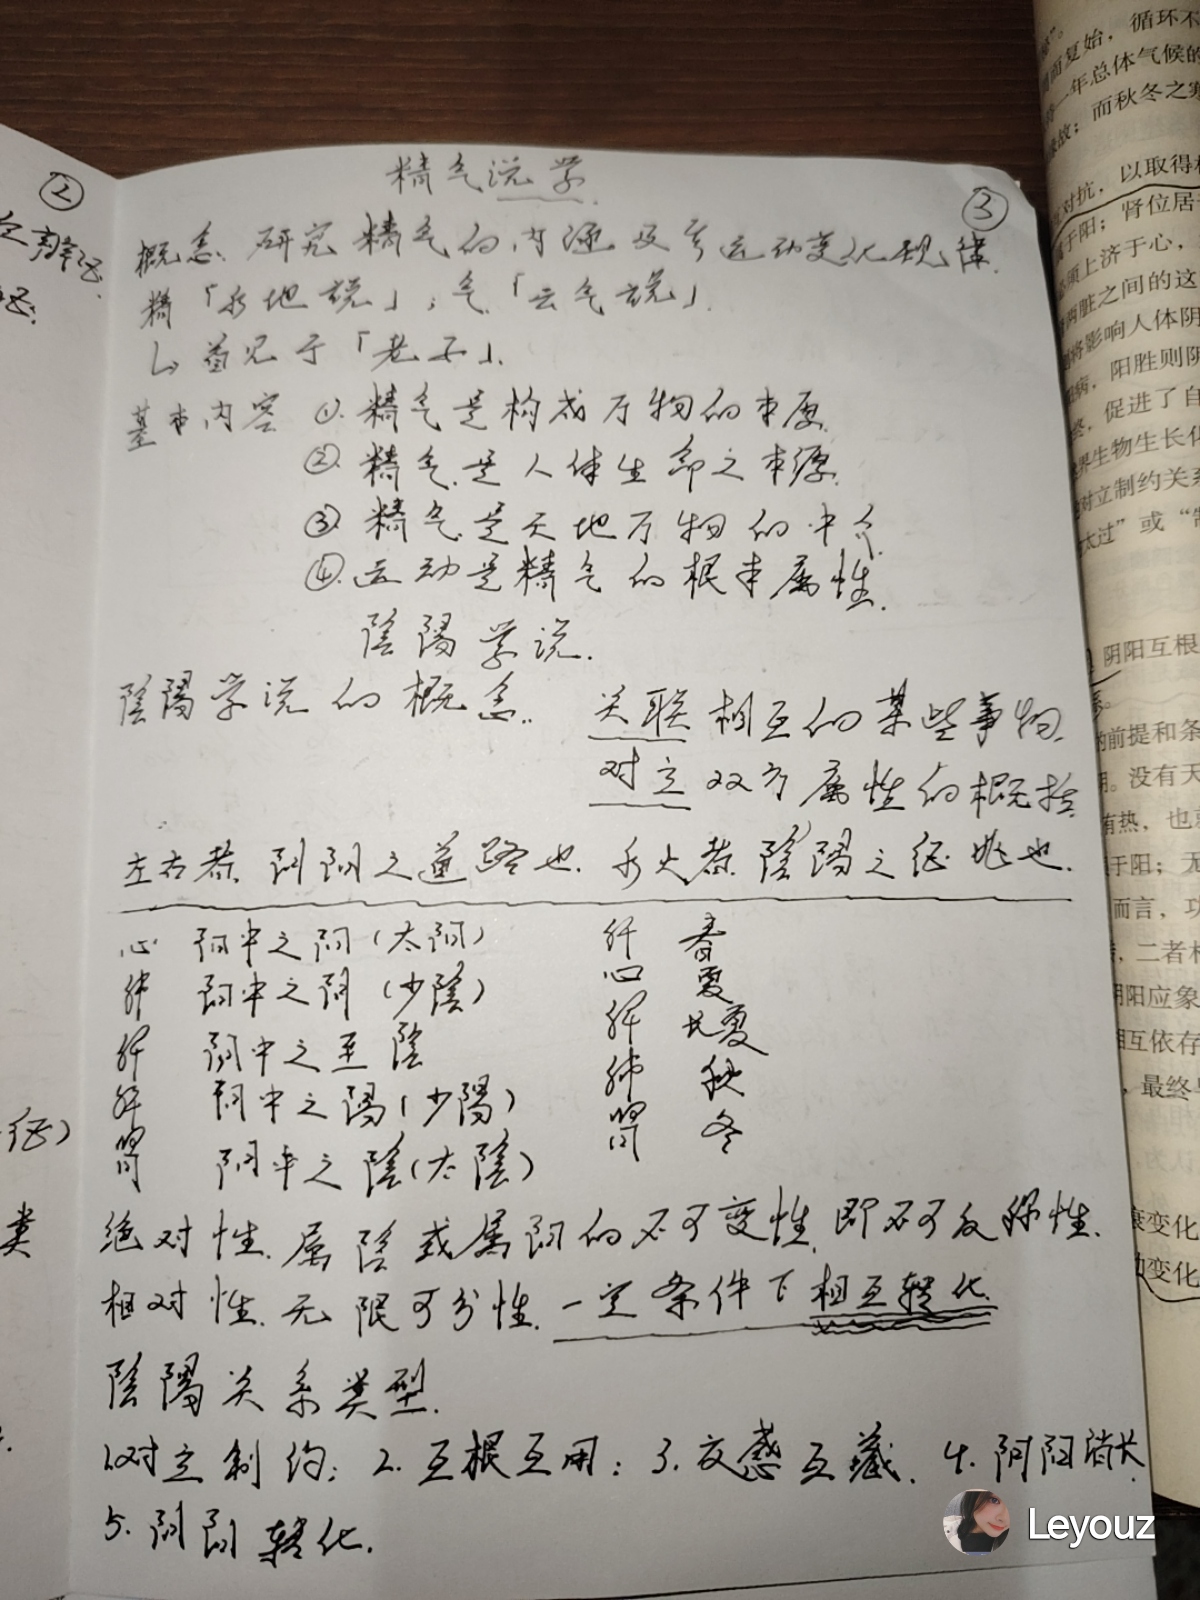 ②
③
精气说学
概念. 研究精气的内涵及其运动变化规律.
精「水地说」; 气「云气说」
↳ 首见于「老子」.
基本内容 ①. 精气是构成万物的本原.
②. 精气是人体生命之本源.
③. 精气是天地万物的中介.
④. 运动是精气的根本属性.
陰陽学说.
陰陽学说的概念. 关联相互的某些事物.
对立双方属性的概括
左右者. 阴阳之道路也. 水火者. 陰陽之征兆也.
心 阳中之阳(太阳) 肝 春
肺 阳中之阴(少陰) 心 夏
脾 阴中之至陰 脾 长夏
肝 阴中之陽(少陽) 肺 秋
腎 阴中之陰(太陰) 腎 冬
绝对性. 属陰或属阳的不可变性. 即不可反称性.
相对性. 无限可分性. 一定条件下相互转化
陰陽关系类型.
1.对立制约; 2. 互根互用; 3. 交感互藏. 4. 阴阳消长
5. 阴阳转化.
类
而复始，循环不
一年总体气候的
故；而秋冬之寒
对抗，以取得相
于阳；肾位居
须上济于心，
两脏之间的这
将影响人体阴
病，阳胜则阴
，促进了自
界生物生长化
对立制约关系
太过”或“制
阴阳互根
的前提和条
。没有天
有热，也就
于阳；无
而言，功
，二者相
阴阳应象
相互依存
，最终
衰变化
的变化
Leyouz